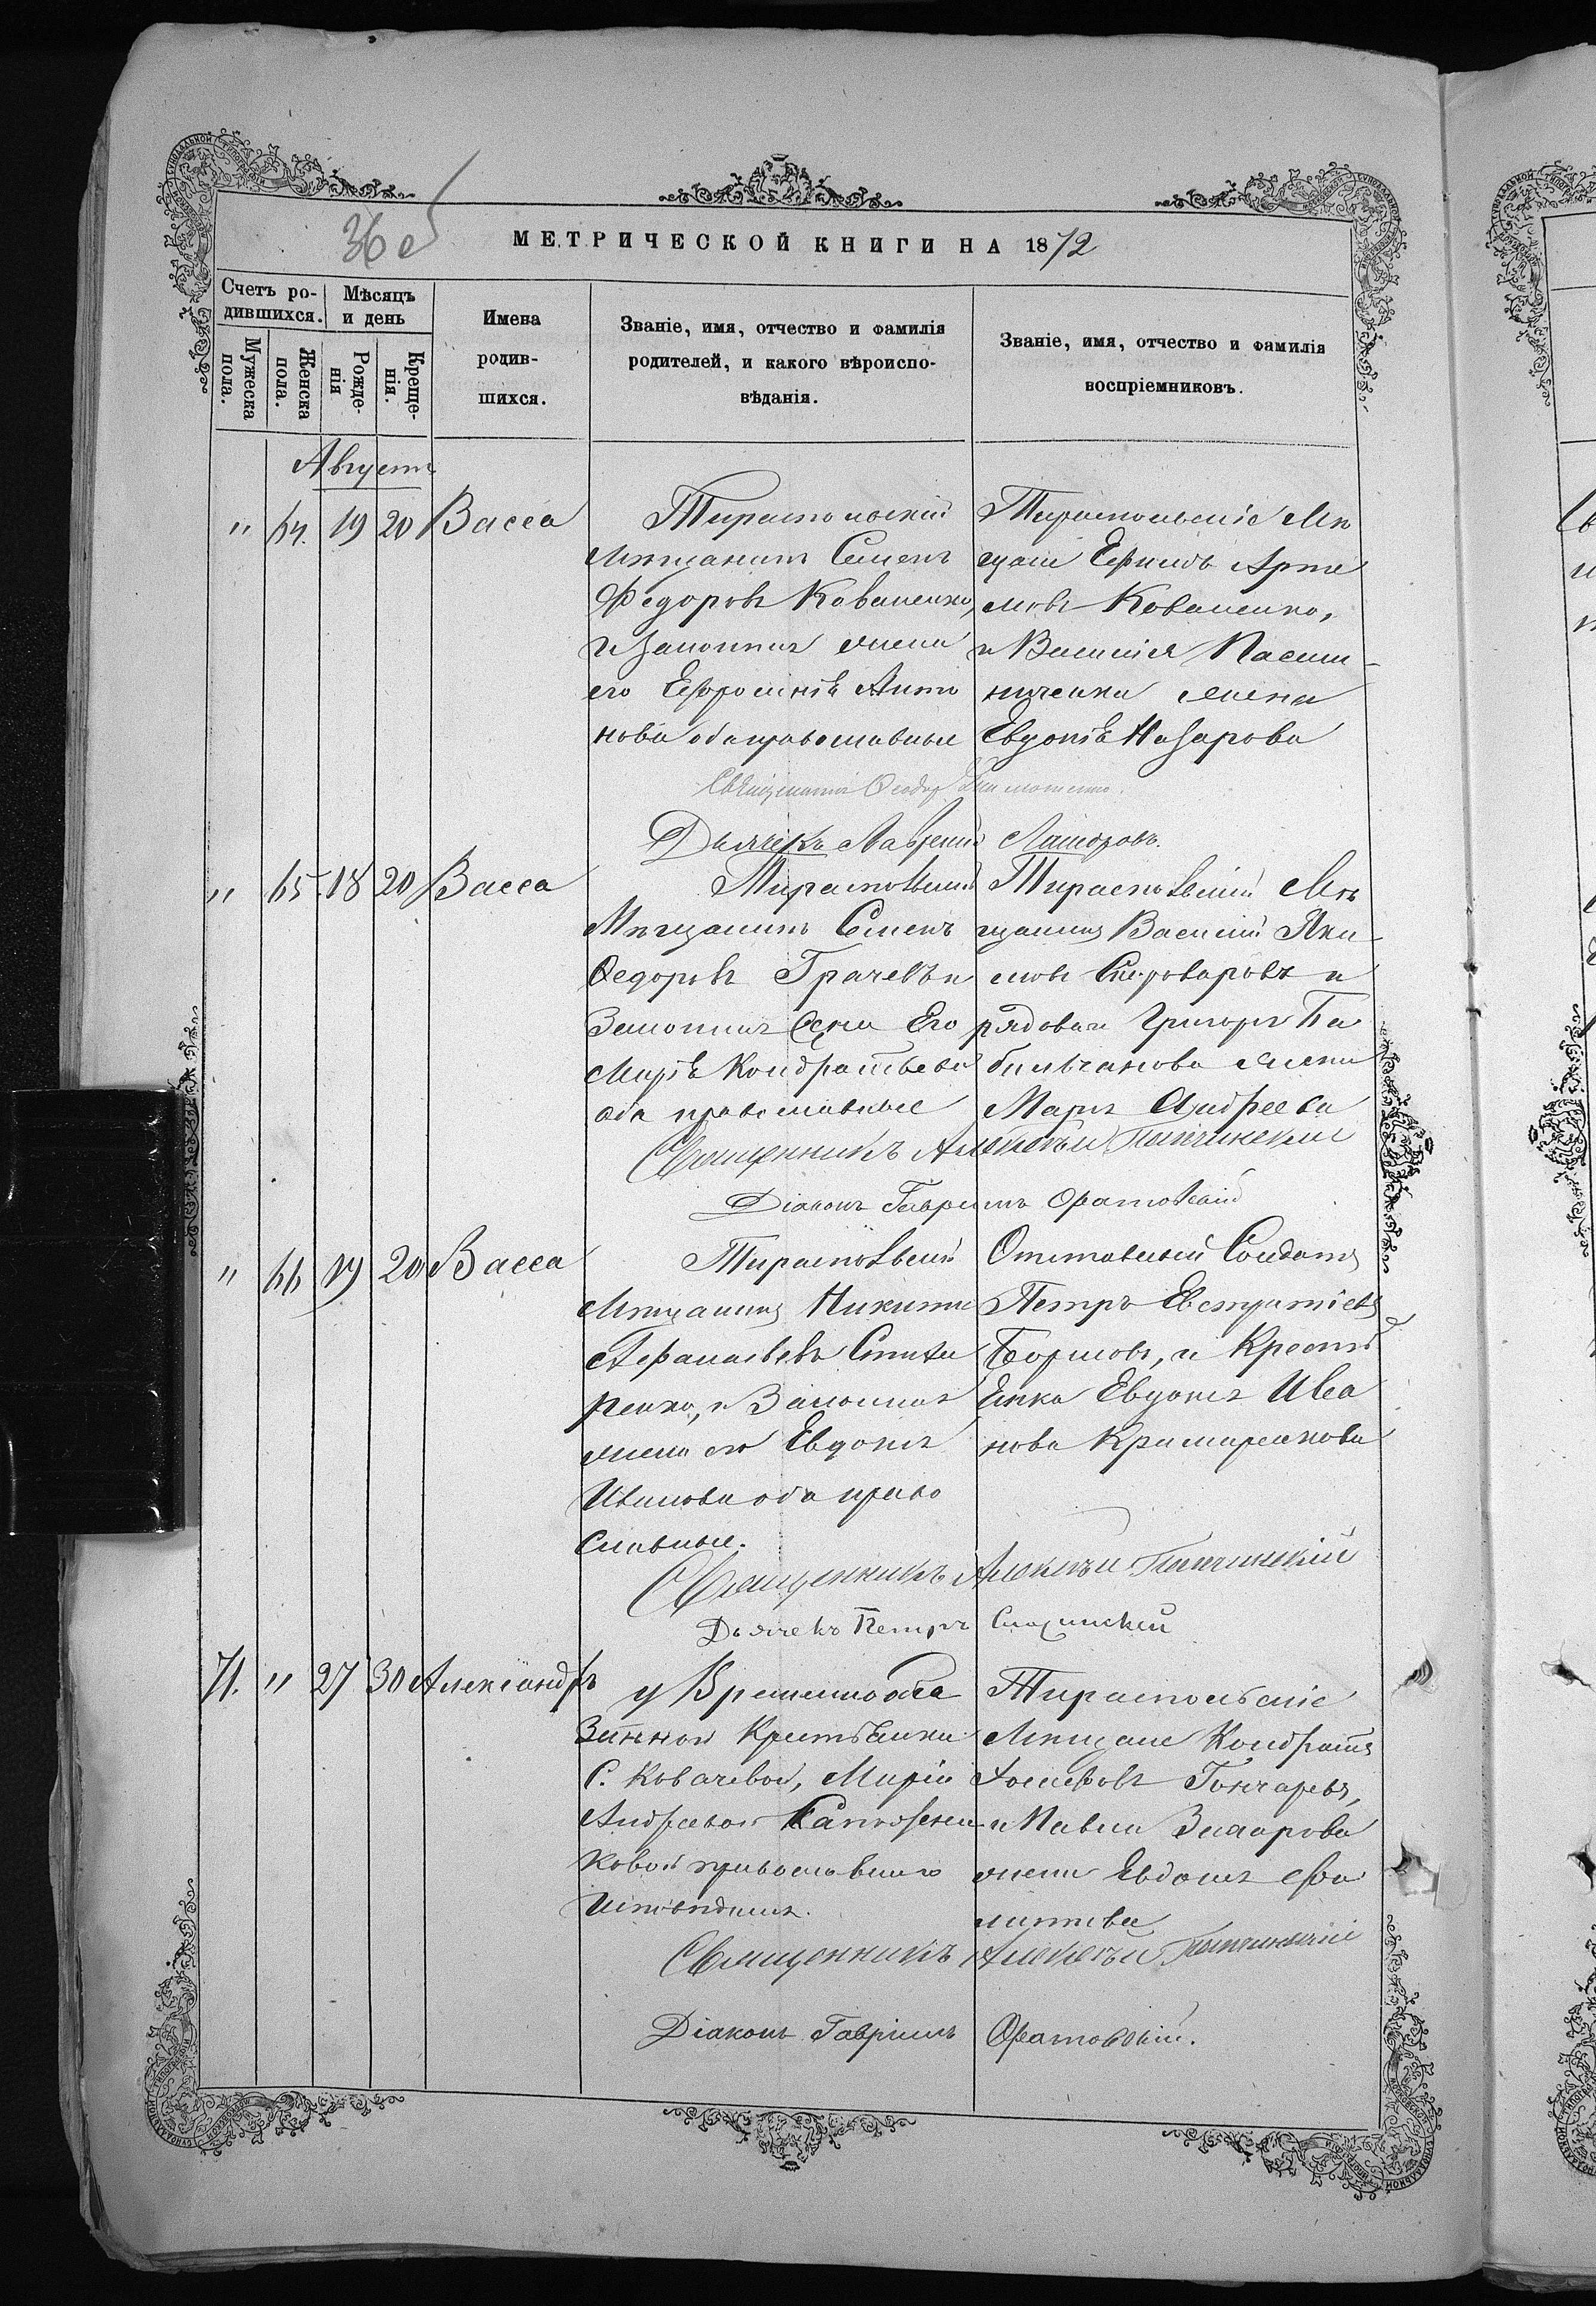 36 об
МЕТРИЧЕСКОЙ КНИГИ НА 1872
Счетъ родившихся.
Мужеска пола.
Женска пола.
Мѣсяцъ и день
Рожденія
Крещенія.
Имена родившихся.
Званіе, имя, отчество и фамилія
родителей, и какого вѣроиспо-
вѣданія.
Званіе, имя, отчество и фамилія
воспріемниковъ.
Августъ
" 64. 19 20 Васса
Тираспольскій
Мѣщанинъ Семенъ
Федоровъ Коваленко,
и Законная жена
его Ефросинія Анто
нова оба православные
Тираспольскіе Мѣ
щане Ефимъ Арте
мовъ Коваленко,
и Василія Пасеч-
ниченка жена
Евдокія Назарова
Священникъ Ѳеодоръ
Дьячекъ Лаврентій
" 65. 18 20 Васса
Тираспольскій
Мѣщанинъ Семенъ
Ѳедоровъ Грачевъ и
Законная Жена Его
Марія Кондратьева
оба православные
Тираспольскій Мѣ
щанинъ Василій Яки-
мовъ Скироваровъ и
рядоваго Григорія
жена
Марія Андреева
Священникъ Алексѣй
Діаконъ Гавріилъ Оратовскій
" 66 19 20 Васса
Тираспольскій
Мѣщанинъ Никита
Афанасьевъ Слюса
ренко, и Законная
жена его Евдокія
Иванова оба право
славные.
Отставной Солдатъ
Петръ Евстратіевъ
Бормовъ, и Крестья
Енка Евдокія Ива
нова Крамаренкова
Священникъ Алексѣй
Дьячекъ Петръ
71. " 27 30 Александръ
у Временнообя
занной Крестьянки
С. Ковачевой, Маріи
Андреевой
ковой православнаго
исповѣданія.
Тираспольскіе
Мѣщане Кондратъ
Гончаровъ,
и Павла Захарова
жена Евдокія
Священникъ Алексѣй
Діаконъ Гавріилъ Оратовскій.